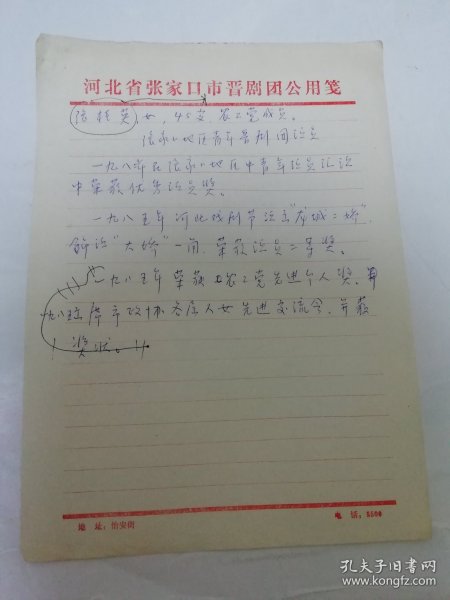 河北省张家口市晋剧团公用笺
张桂英，女，45岁，农工党成员。
张家口地区青年晋剧团演员
一九八 年在张家口地区中青年演员汇演
中荣获优秀演员奖。
一九八五年河北戏剧节演出"龙城二娇"，
饰演"大娇"一角，荣获演员二等奖。
一九八五年荣获 农工党先进个人奖，并
出席市政协各届人士先进交流会，并获
奖状。
地 址：怡安街
电 话：5500
孔夫子旧书网
www.kongfz.com